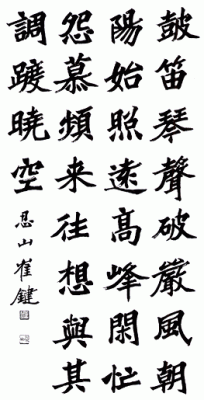 鼓笛琴聲破巖風朝
陽始照遠高峰閑忙
怨慕頻来往想與其
調踱曉空
忍山崔鍵